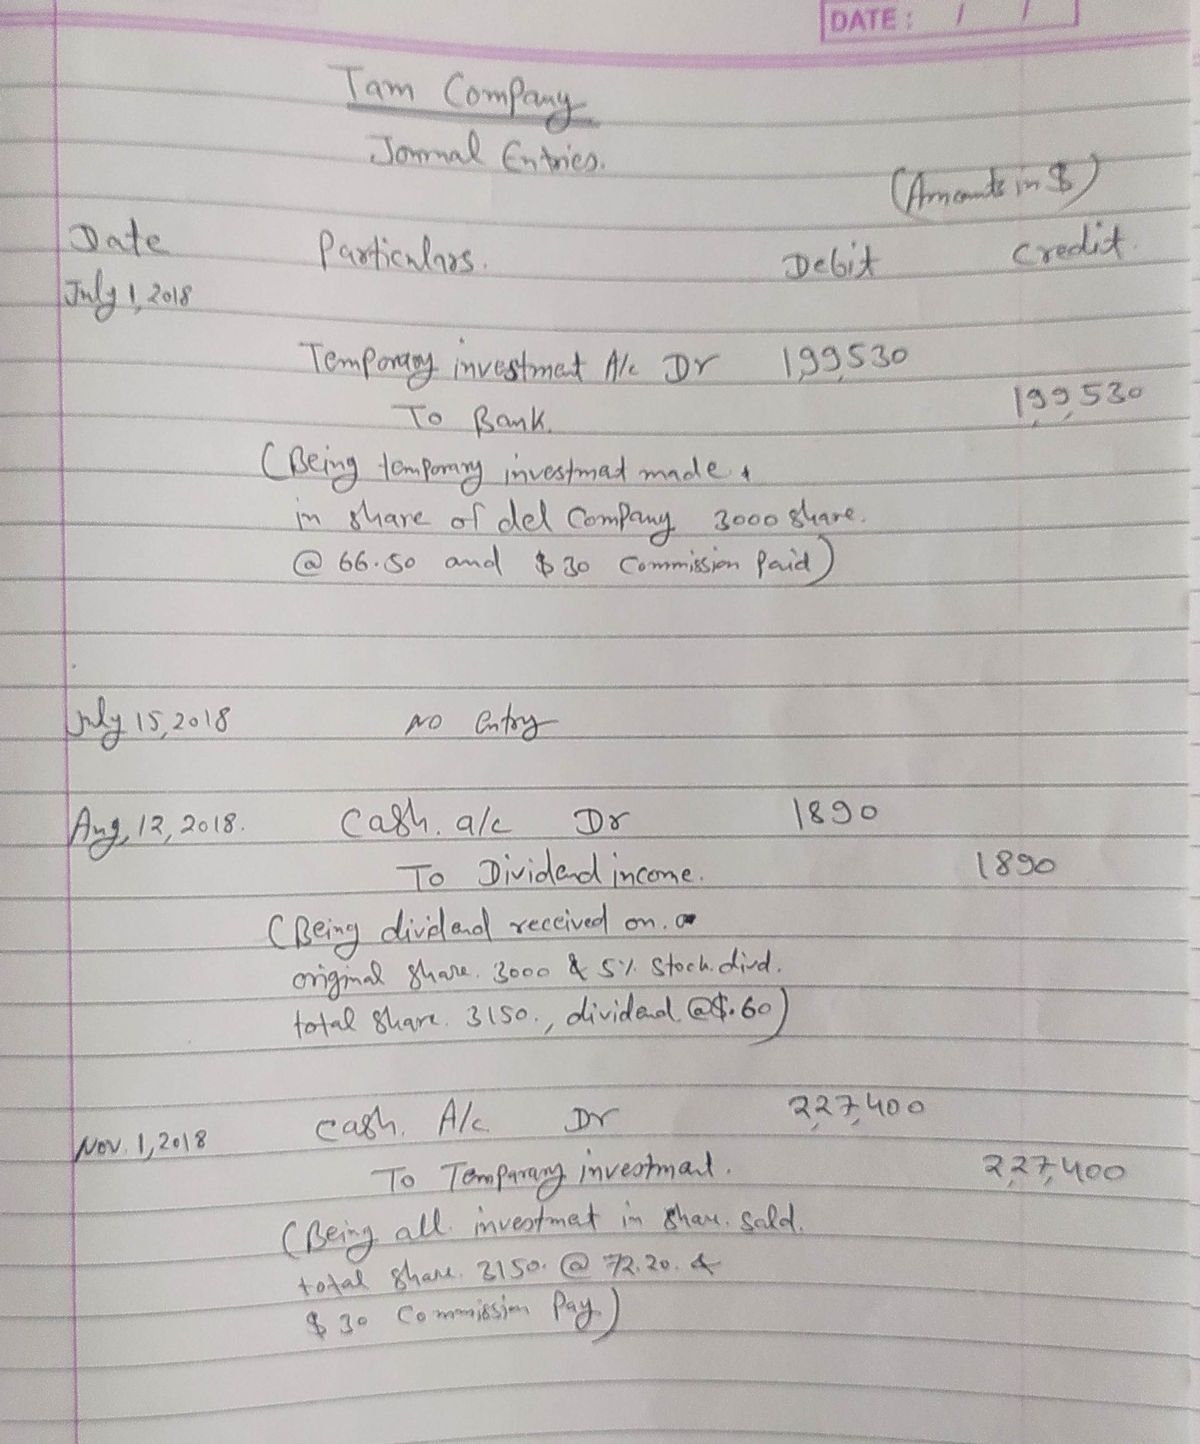 DATE: / /
Tam Company
Journal Entries.
(Amounts in $)
Date Particulars. Debit Credit.
July 1, 2018
Temporary investment A/c Dr 1,99,530
To Bank. 1,99,530
(Being temporary investmat made &
in share of del Company 3000 share.
@ 66.50 and $30 Commission Paid)
July 15, 2018 NO Entry
Aug, 12, 2018. Cash. a/c Dr 1890
To Dividend income. 1890
(Being dividend received on.
original share. 3000 & 5% Stock. divd.
total share. 3150., dividend @$.60)
Nov. 1, 2018 Cash. A/c Dr 2,27,400
To Temparary investmat. 2,27,400
(Being all. investmat in share. sold.
total share. 3150. @ 72.20. &
$30 Commission Pay.)